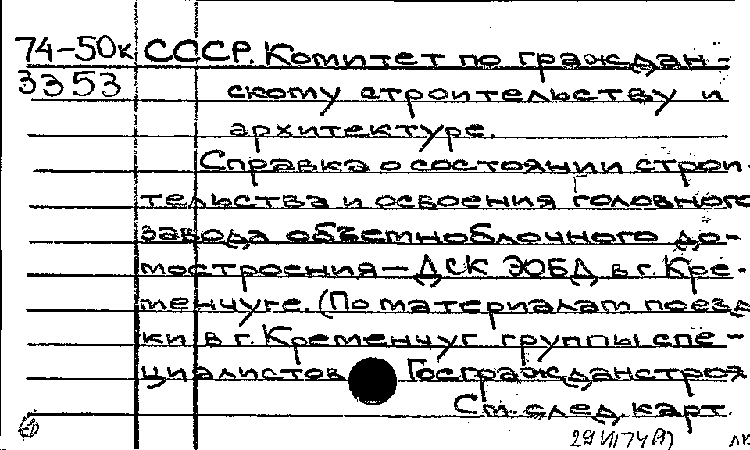 74-50к СССР. Комитет по граждан-
3353 скому строительству и
архитектуре.
Справка о состоянии строи-
тельства и освоения головного
завода объемноблочного до-
мостроения — ДСК ЭОБД в г. Кре-
менчуге. (По материалам поезд
ки в г. Кременчуг группы спе-
циалистов Госгражданстроя
См. след. карт.